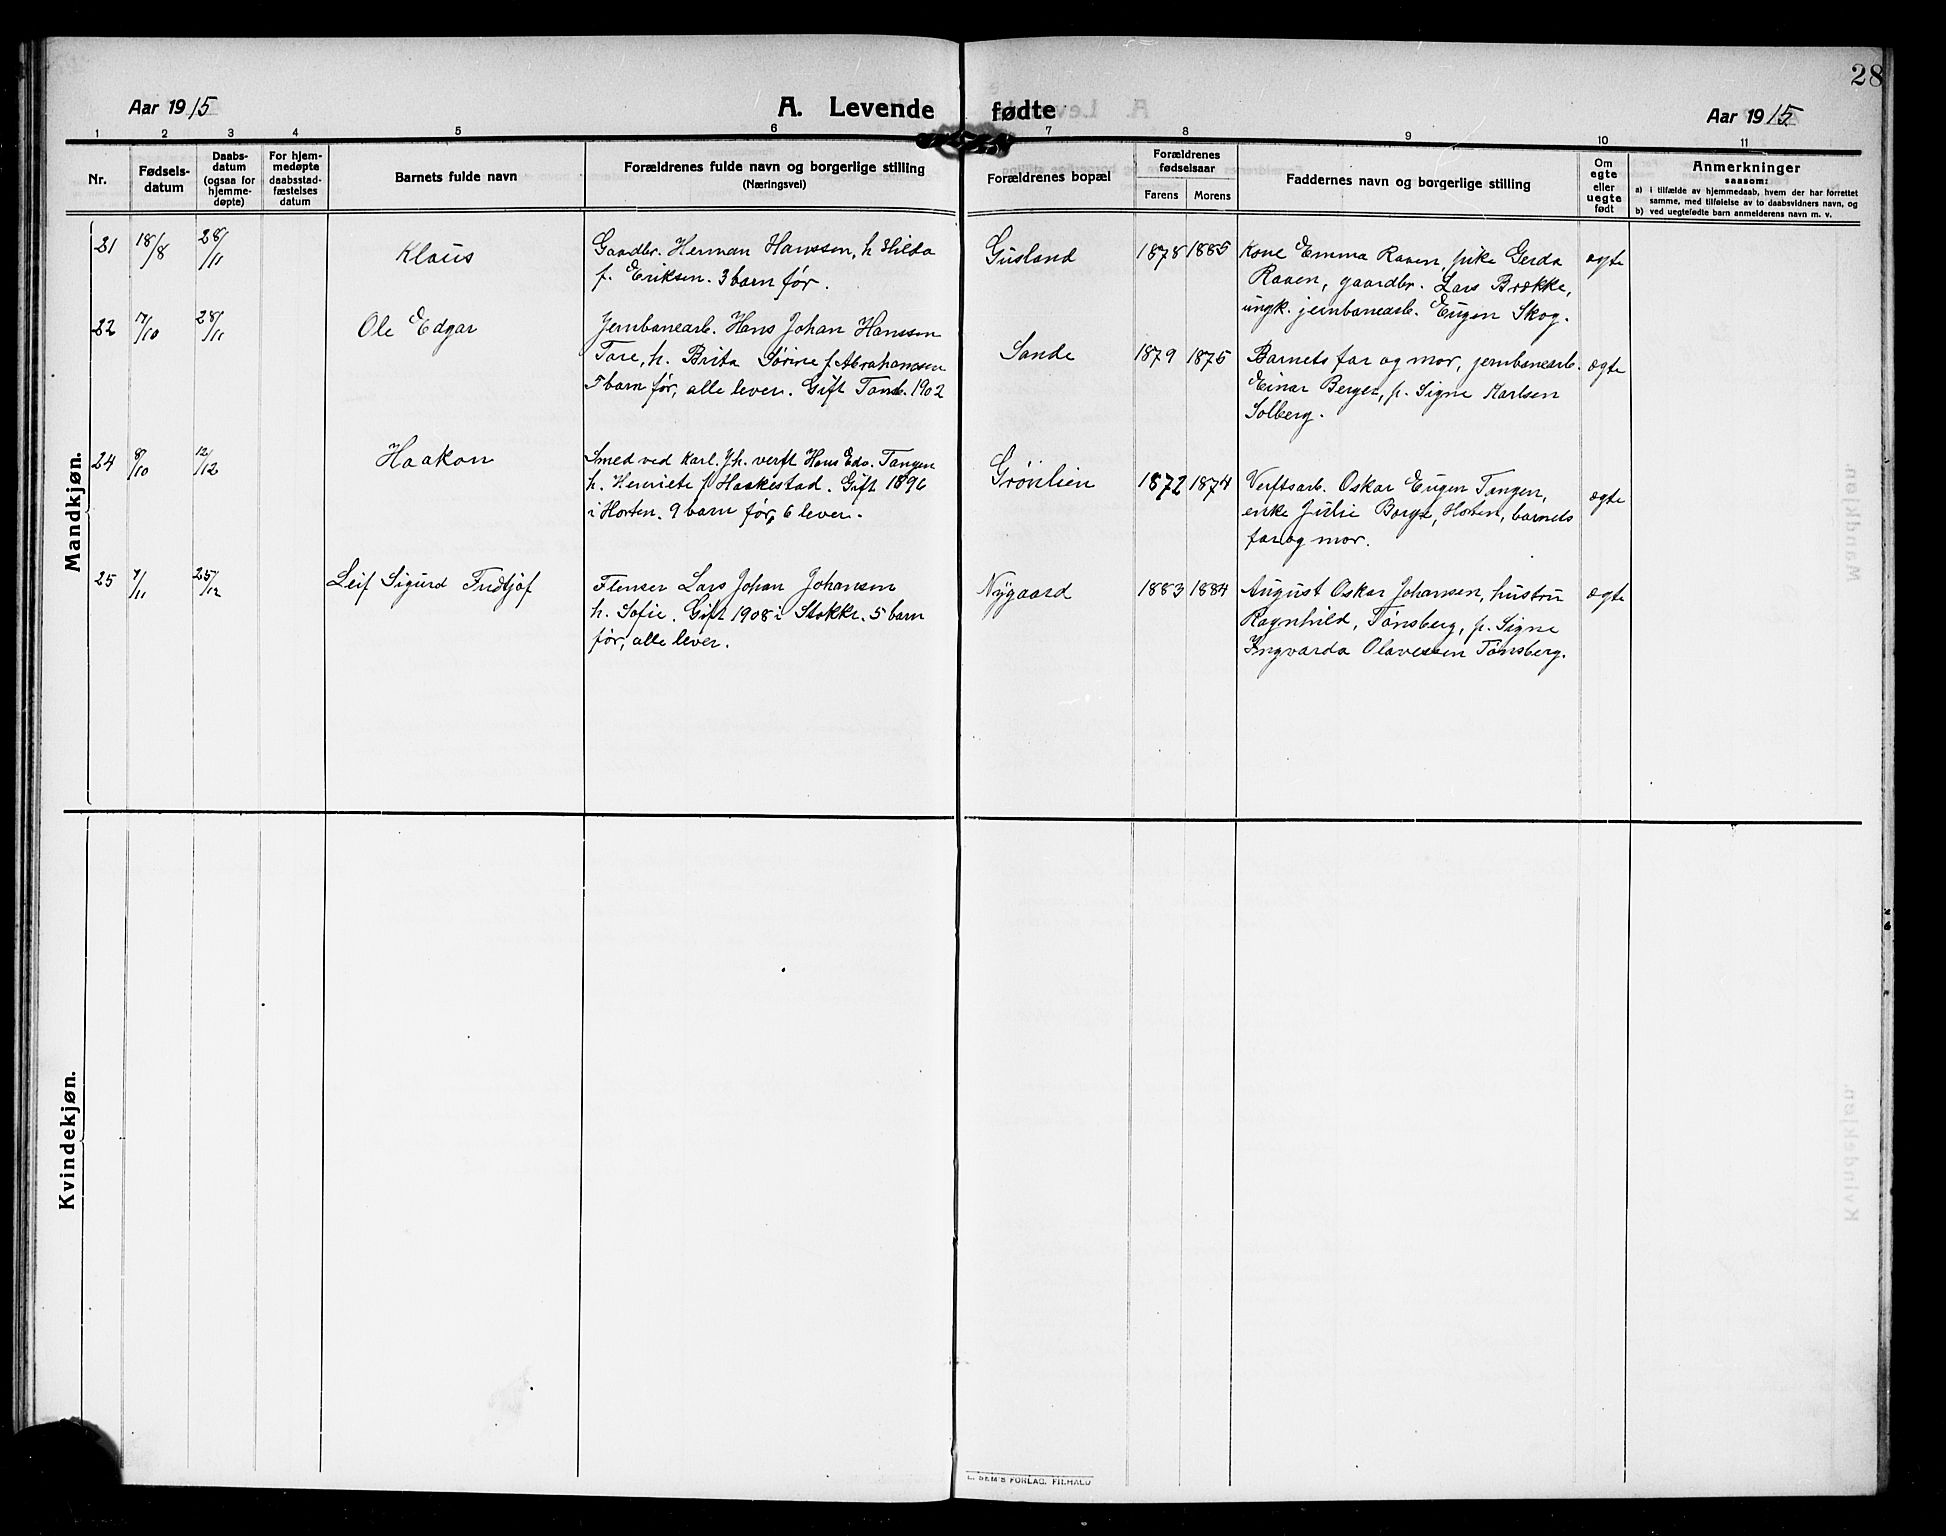 28
Aar 1915
A. Levende fødte
Aar 1915
1 2 3 4 5 6 7 8 9 10 11
Nr.
Fødsels-
datum
Daabs-
datum
(ogsaa for
hjemme-
døpte)
For hjem-
medøpte
daabsstad-
fæstelses
datum
Barnets fulde navn
Forældrenes fulde navn og borgerlige stilling
(Næringsvei)
Forældrenes bopæl
Forældrenes
fødselsaar
Farens Morens
Faddernes navn og borgerlige stilling
Om
egte
eller
uegte
født
Anmerkninger
saasom:
a) i tilfælde av hjemmedaab, hvem der har forrettet
samme, med tilføielse av to daabsvidners navn, og
b) ved uegtefødte barn anmelderens navn m. v.
Mandkjøn.
21 18/8 28/11 Klaus
Gaardbr. Herman Hanssen, h Hilda
f. Eriksen. 3 barn før.
Gusland 1878 1885
Kone Emma Raaen, pike Gerda
Raaen, gaardbr. Lars Brække,
ungk. jernbanearb. Eugen Skog.
ægte
22 17/10 28/11 Ole Edgar
Jernbanearb. Hans Johan Hanssen
Tare, h. Brita Sørine f. Abrahamsen
5 barn før, alle lever. Gift 1902
Sande 1879 1875
Barnets far og mor, jernbanearb.
Einar Berger, p. Signe Karlsen
Solberg.
ægte
24 8/10 12/12 Haakon
Smed ved Karl. Jh. verft Hans Edv. Tangen
h. Henriete f Haakestad. Gift 1896
i Horten. 9 barn før, 6 lever.
Grønlien 1872 1874
Verftsarb. Oskar Eugen Tangen,
enke Julie Borge, Horten, barnets
far og mor.
ægte
25 7/11 25/12 Leif Sigurd Fridtjof
Flenser Lars Johan Johansen
h. Sofie. Gift 1908 i Stokke. 5 barn
før, alle lever.
Nygaard 1883 1884
August Oskar Johansen, hustru
Ragnhild, Tønsberg, p. Signe
Ingvarda Olavessen Tønsberg.
ægte
Kvindekjøn.
E. SEM'S FORLAG. FR.HALD